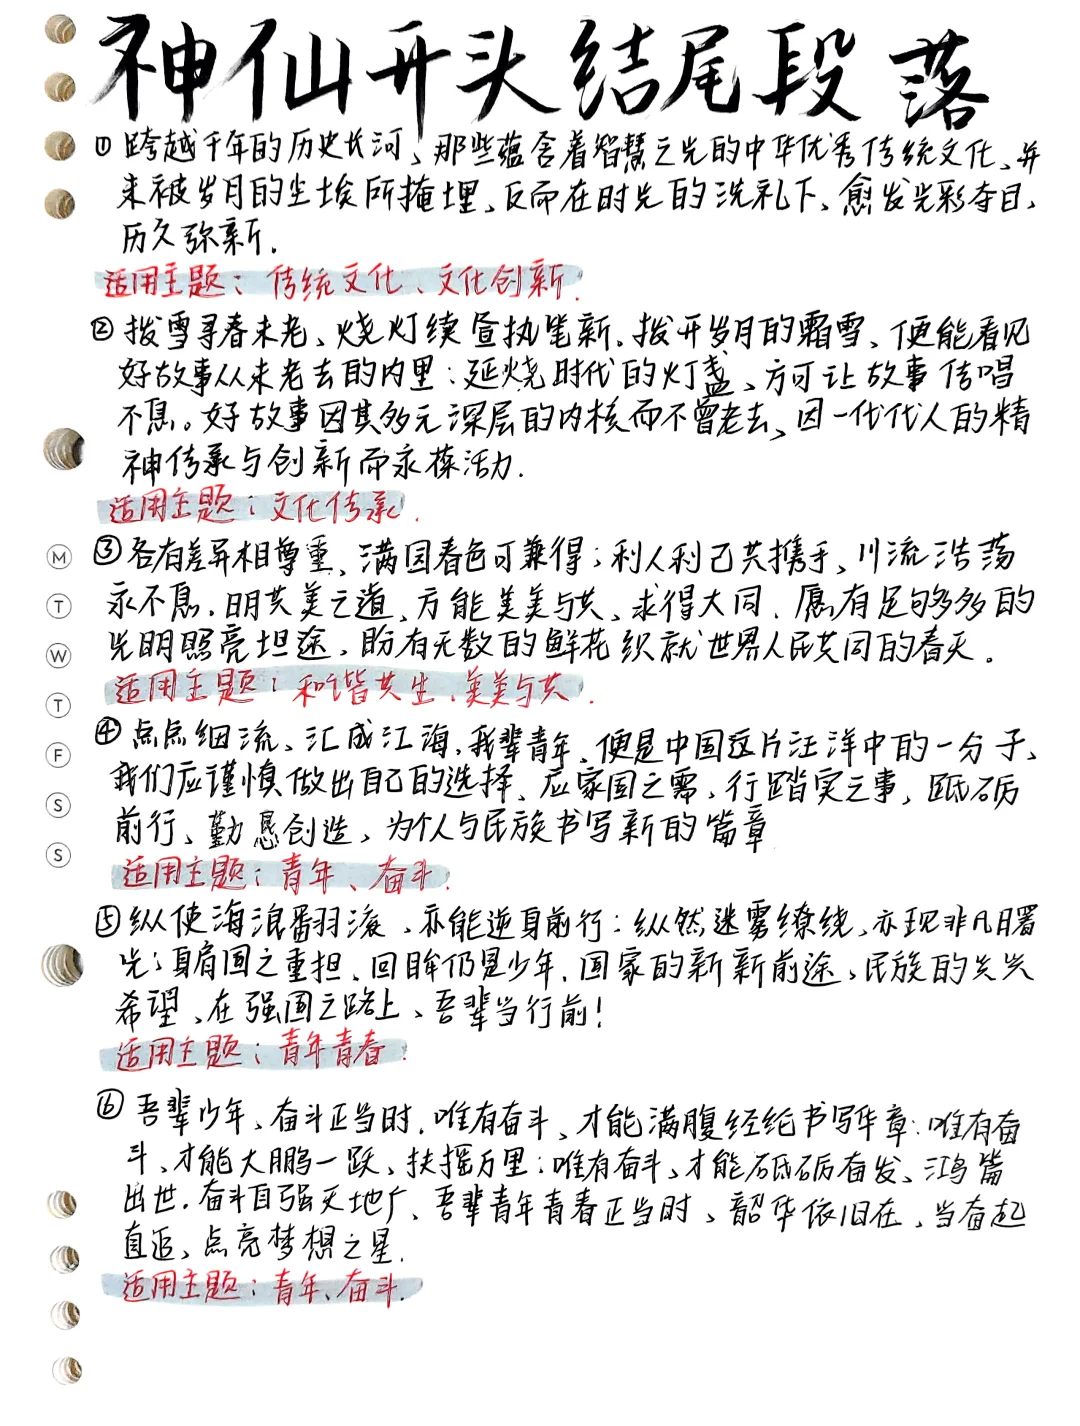 神仙开头结尾段落
① 跨越千年的历史长河、那些蕴含着智慧之光的中华优秀传统文化、并
未被岁月的尘埃所掩埋、反而在时光的洗礼下、愈发光彩夺目,
历久弥新.
适用主题: 传统文化、文化创新.
② 拨雪寻春未老、烧灯续昼执笔新.拨开岁月的霜雪、便能看见
好故事从未老去的内里:延烧时代的灯盏、方可让故事传唱
不息。好故事因其多元深层的内核而不曾老去、因一代代人的精
神传承与创新而永葆活力.
适用主题:文化传承.
③ 各有差异相尊重、满园春色可兼得;利人利己共携手、川流浩荡
永不息.明共美之道、方能美美与共、求得大同.愿有足够多的
光明照亮坦途、盼有无数的鲜花织就世界人民共同的春天。
适用主题:和谐共生、美美与共.
④ 点点细流、汇成江海,我辈青年、便是中国这片汪洋中的一分子、
我们应谨慎做出自己的选择、应家国之需、行踏实之事、砥砺
前行、勤恳创造、为个人与民族书写新的篇章
适用主题:青年、奋斗.
⑤ 纵使海浪翻滚、亦能逆身前行:纵然迷雾缭绕、亦现非凡曙
光;身肩国之重担、回眸仍是少年.国家的新新前途、民族的
希望、在强国之路上、吾辈当行前!
适用主题:青年青春.
⑥ 吾辈少年、奋斗正当时.唯有奋斗、才能满腹经纶书写华章:唯有奋
斗、才能大鹏一跃、扶摇万里:唯有奋斗、才能砥砺奋发、鸿篇
出世.奋斗自强天地广、吾辈青年青春正当时、韶华依旧在、当奋起
直追、点亮梦想之星.
适用主题:青年、奋斗.
M
T
W
T
F
S
S